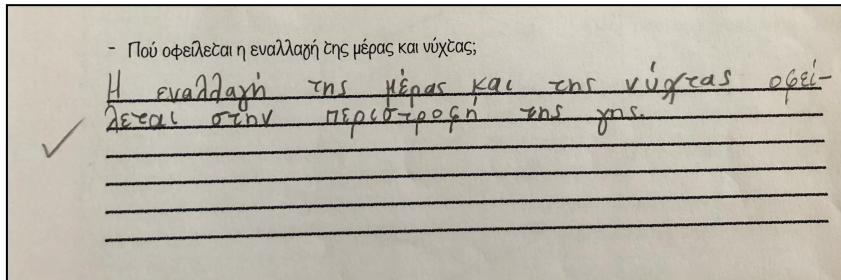 - Πού οφείλεται η εναλλαγή της μέρας και νύχτας;
Η εναλλαγή της μέρας και της νύχτας οφεί-
λεται στην περιστροφή της γης.